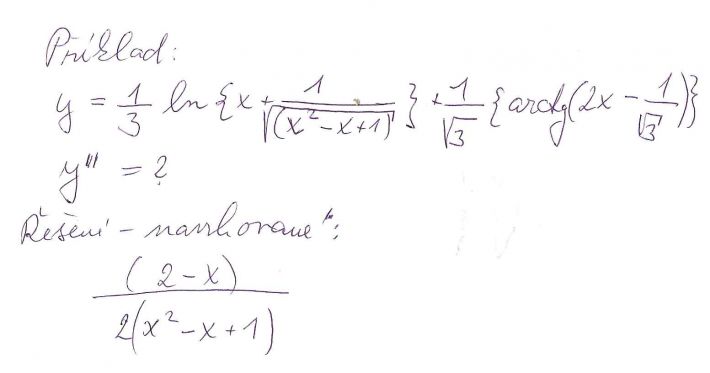 Příklad:
y = 1/3 ln {x + 1/√(x² - x + 1)} + 1/√3 {arctg(2x - 1/√3)}
y''' = ?
Řešení - navrhované:
(2 - x)/2(x² - x + 1)